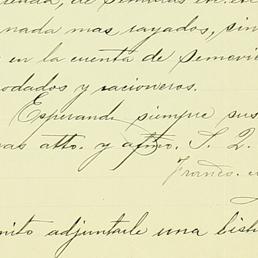 nada mas rayados, sin
en la cuenta de semovie
odados y racioneros.
Esperando siempre sus
atto. y afmo. S. 2.
Frances.
adjuntarle una